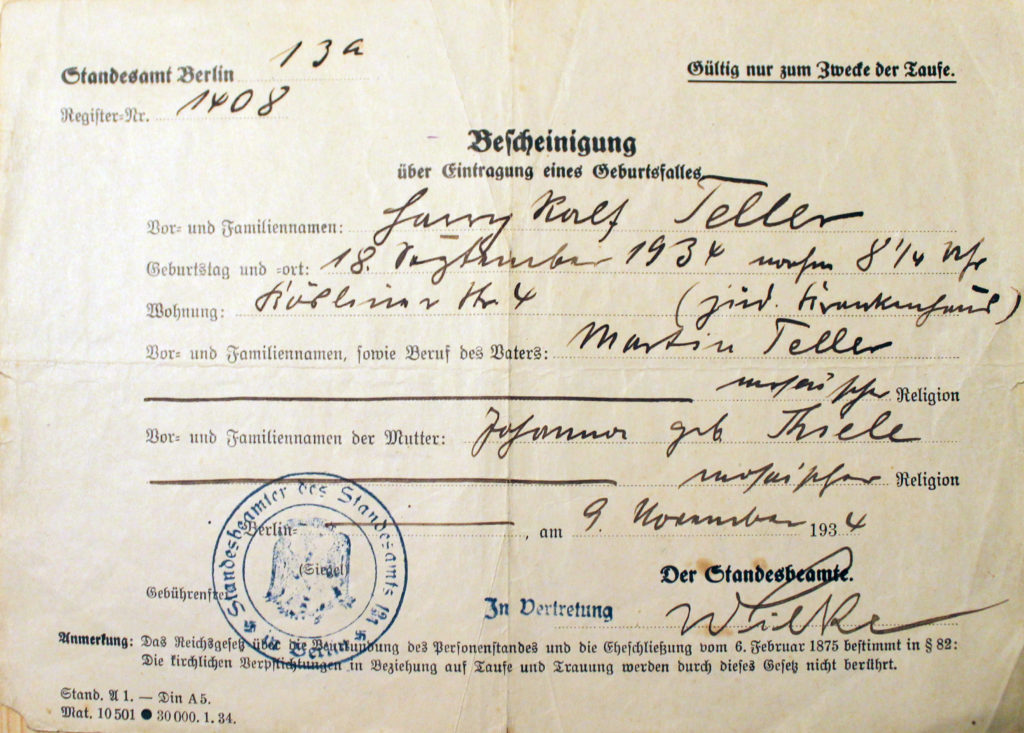 13a
Standesamt Berlin
Gültig nur zum Zwecke der Taufe.
Register-Nr. 1408
Bescheinigung
über Eintragung eines Geburtsfalles
Vor- und Familiennamen: Harry Ralf Teller
Geburtstag und -ort: 18. September 1934 vorm 8 1/4 Uhr
Wohnung: Kösliner Str. 4 (jüd. Krankenhaus)
Vor- und Familiennamen, sowie Beruf des Vaters: Martin Teller
mosaischer Religion
Vor- und Familiennamen der Mutter: Johanna geb Thiele
mosaischer Religion
Berlin- , am 9. November 1934
(Siegel)
Standesbeamter des Standesamts 13a in Berlin
Der Standesbeamte.
Gebührenfrei
In Vertretung
Wilke
Anmerkung: Das Reichsgesetz über die Beurkundung des Personenstandes und die Eheschließung vom 6. Februar 1875 bestimmt in § 82:
Die kirchlichen Verpflichtungen in Beziehung auf Taufe und Trauung werden durch dieses Gesetz nicht berührt.
Stand. A 1. — Din A 5.
Mat. 10 501 ● 30 000. 1. 34.